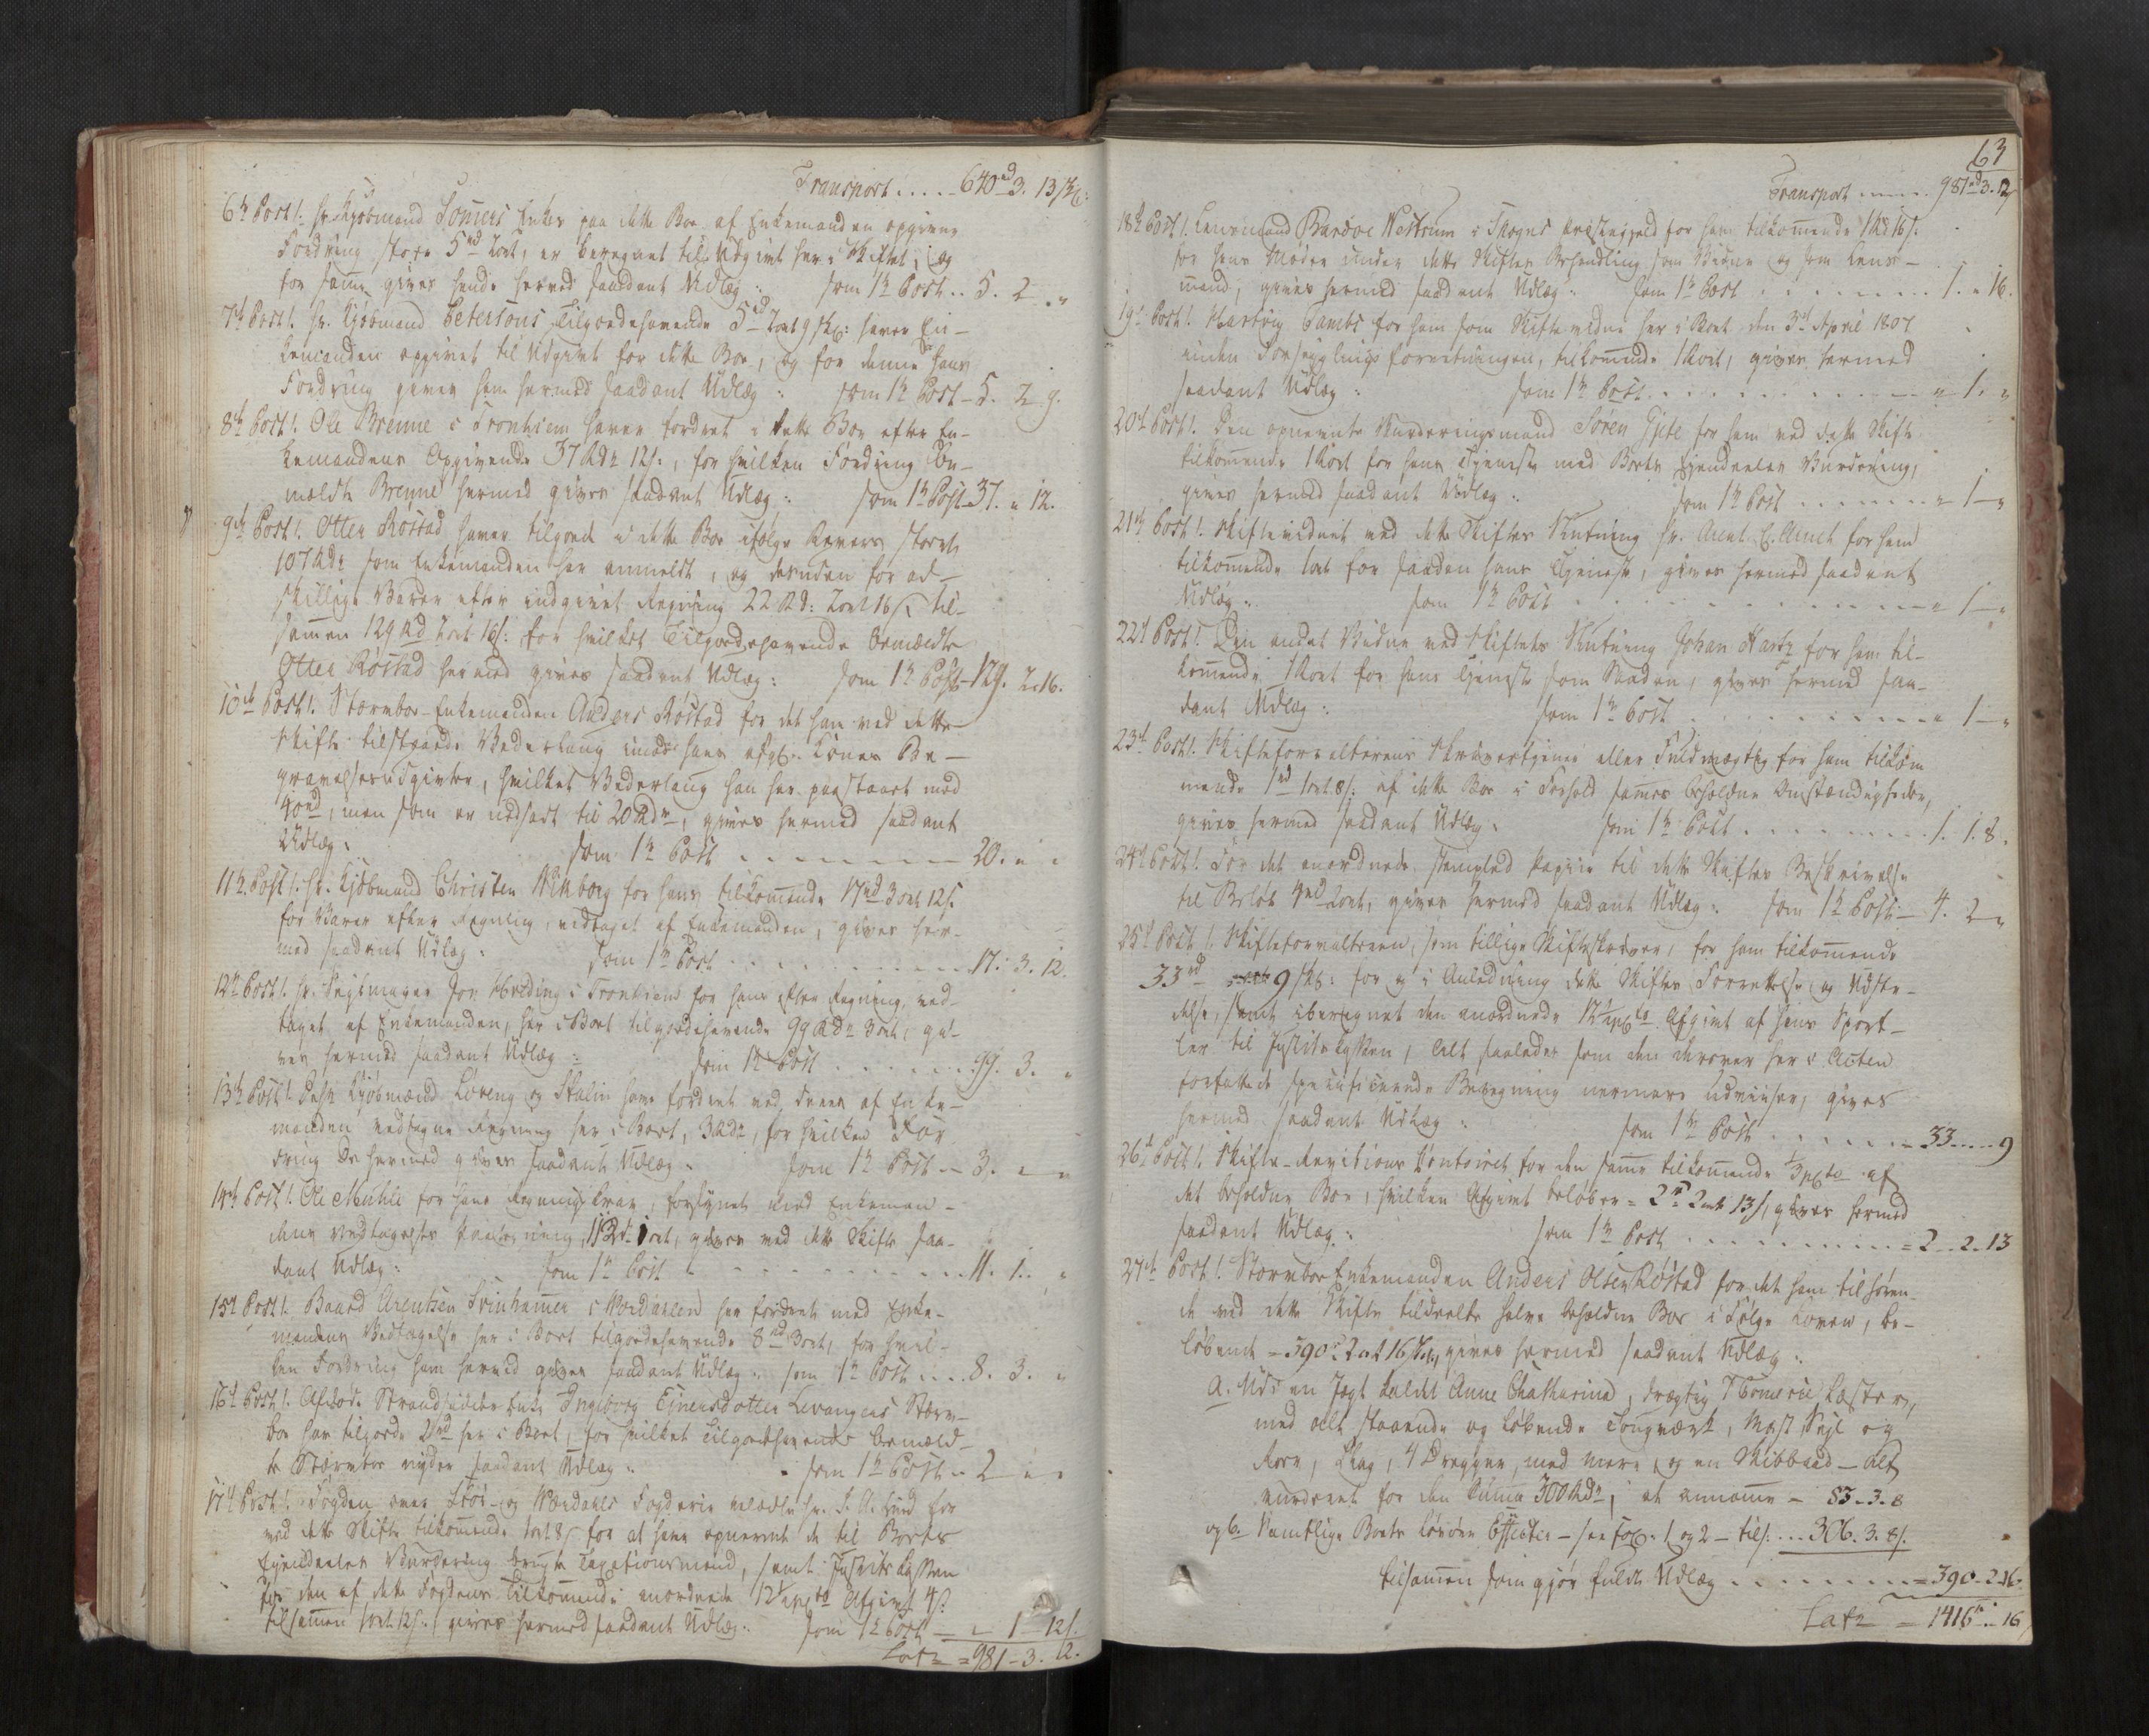 Transport ..... 640rd 3. 13 sk:
6te Post/: Hr. Kjøbmand Somers Enkes paa dette Boe af Enkemanden opgivne
Fordring stor 5rd 2ort, er beregnet til Udgivt her i Skiftet, og
for samme gives hende herved saadant Udlæg: som 1te Post .. 5. 2. "
7de Post/: Hr. Kjøbmand Petersons Tilgodehavende 5rd 2ort 9 sk: haver En-
kemanden opgivet til Udgivt for dette Boe, og for denne hans
Fordring gives ham hermed saadant Udlæg: som 1te Post - 5. 2. 9.
8de Post/: Ole Brenne i Tronhiem haver fordret i dette Boe efter En-
kemandens Opgivende 37 Rdr 12 s:, for hvilken Fordring be-
meldte Brenne hermed gives saadant Udlæg: som 1te Post 37. " 12.
9de Post/: Otter Røstad haver tilgode i dette Boe ifølge Revers stort
107 Rdr som Enkemanden har anmeldt, og desuden for ad-
skillige Varer efter indgivet Regning 22 Rd: 2ort 16 s, til-
sammen 129 Rd 2ort 16 s: for hvilket Tilgodehavende bemældte
Otter Røstad hermed gives saadant Udlæg: som 1te Post - 129. 2. 16.
10de Post/: Stærvboe-Enkemanden Anders Røstad for det ham ved dette
Skifte tilstaaede Vederlaug imod hans afg: Kones Be-
gravelsesudgivter, hvilket Vederlaug han har paastaaet med
40rd, men som er nedsadt til 20 Rdr, gives hermed saadant
Udlæg: som 1te Post ....... 20. " "
11te Post/: Hr. Kjøbmand Christen Wikborg for hans tilkommende 17rd 3ort 12 s.
for Varer efter Regning, vedtaget af Enkemanden, gives her-
med saadant Udlæg: som 1te Post ........ 17. 3. 12.
12te Post/: Hr. Sejlmager Jon Hveding i Tronhiem for hans efter Regning, ved-
taget af Enkemanden, her i Boet tilgodehavende 99 Rdr 3ort, gi-
ves hermed saadant Udlæg: som 1te Post ...... 99. 3. "
13de Post/: Hr Kjøbmænd Loreng og Stalin have fordret ved deres af Enke-
manden vedtagne Regning her i Boet, 3 Rdr, for hvilken For-
dring de hermed gives saadant Udlæg: som 1te Post - 3. " "
14de Post/: Ole Muhle for hans Regnings Krav, forsynet med Enkeman-
dens Vedtagelses Paategning, 11 Rd 1ort, gives ved dette Skifte saa-
dant Udlæg: som 1te Post ......... 11. 1. "
15de Post/: Baard Arentsen Svinhammer i Værdahlen har fordret med Enke-
mandens Vedtagelse her i Boet tilgodehavende 8rd 3ort, for hvil-
ken Fordring ham hermed gives saadant Udlæg: som 1te Post .... 8. 3. "
16de Post/: Afdøde Strandsidder Enke Ingeborg Ejnersdotter Levangers Stærv-
boe har tilgode 2rd her i Boet, for hvilket Tilgodehavende bemeld-
te Stærvboe nyder saadant Udlæg: som 1te Post .. 2 " "
17de Post/: Fogden over Stør- og Værdahls Fogderie velædle Hr. S. A. Lund for
ved dette Skifte tilkommende 1ort 8 s for at have opnevnt de til Boets
Ejendeles Vurdering brugte Taxationsmænd, samt Justits Cassen
for den af dette Fogdens Tilkommende anordnede 12½ pCto Afgivt 4 s:
tilsammen 1ort 12 s:, gives hermed saadant Udlæg: som 1te Post — " 1 — 12 s.
Lat: = 981 - 3. 12.
63
Transport ...... 981rd 3. 12
18de Post/: Lensmand Bardoe Westrum i Skogns Præstegjeld for ham tilkommende 1 Rd 16 s.
for hans Møder under dette Skiftes Behandling som Vidne og som Lens-
mand, gives hermed saadant Udlæg: som 1te Post ........ 1. " 16.
19de Post/: Hartvig Gambs for ham som Skiftevidne her i Boet den 3de April 1807
under Forseyglings forretningen, tilkommende 1 Rort, gives hermed
saadant Udlæg: som 1te Post ........... " 1. "
20de Post/: Den opnevnte Vurderingsmand Søren Gjite for ham ved dette Skifte
tilkommende 1 Rort for hans Tjeneste med Boets Ejendeeles Vurdering,
gives hermed saadant Udlæg: som 1te Post ...... " 1 — "
21de Post/: Skiftevidnet ved dette Skiftes Slutning Hr. Arent C. Arnet for ham
tilkommende 1ort for saadan hans Tjeneste, gives hermed saadant
Udlæg: som 1te Post .......... " 1 — "
22de Post/: Den andet Vidne ved Skiftets Slutning Johan Hartz for ham til-
kommende 1 Rort for hans Tjeneste som saadan, gives hermed saa-
dant Udlæg: som 1te Post .......... " 1 — "
23de Post/: Skifteforvalterens Skrivertjener eller Fuldmægtig for ham tilkom-
mende 1rd 1ort 8 s: af dette Boe i Forhold sammes beholdne Omstændigheder,
gives hermed saadant Udlæg: som 1te Post ........ 1. 1. 8.
24de Post/: For det anordnede stemplede Papiir til dette Skiftes Beskrivelse
til Beløb 4rd 2ort, gives hermed saadant Udlæg: som 1te Post - 4. 2 "
25de Post/: Skifteforvalteren, som tillige Skifteskriver, for ham tilkommende
33rd 9 sk: for og i Anledning dette Skiftes Forrettelse og Udste-
delse, samt iberegnet den anordnede 12½ pCto Afgivt af hans Sport-
ler til Justits Cassen, Alt saaledes som den derover her i Acten
forfattede specificerende Beregning nermere udviiser, gives
hermed saadant Udlæg: som 1te Post ....... 33 .... 9
26de Post/: Skifte-Revisions Contoiret for den samme tilkommende ⅓ pCto af
det beholdne Boe, hvilken Afgivt beløber = 2rd 2ort 13 s, gives hermed
saadant Udlæg: som 1te Post .......... = 2 .. 2. 13
27de Post/: Stervboe Enkemanden Anders Olsen Røstad for det ham tilhøren-
de ved dette Skifte tildeelte halve beholdne Boe i Følge Loven, be-
løbende = 390rd 2ort 16 sk, gives hermed saadant Udlæg:
a. Udi en Jagt kaldet Anne Chatharina, drægtig 7 Commerce Læster,
med alt staaende og løbende Tougværk, Mast, Sejl og
Rore, Chag, 4 Dregger, med mere, og en Skibbaad — alt
vurderet for den Summa 300 Rdr, at annamme — 83 - 3 - 8
og b. Samtlige Boets Løsøre Effecter — see Fol: 1 og 2 — tils: ... 306. 3. 8 s.
tilsammen som gjør fuldt Udlæg ........ = 390 - 2 - 16.
Lat: = 1416rd .. 16